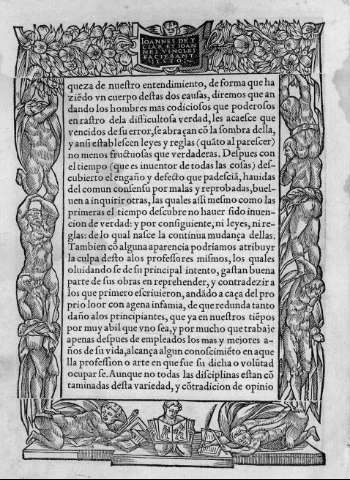 IOANNES DE Y
CIAR. ET IOAN
NES VINGLES
queza de nuestro entendimiento, de forma que ha
ziẽdo vn cuerpo destas dos causas, diremos que an
dando los hombres mas codiciosos que poderosos
en rastro dela difficultosa verdad, les acaesce que
vencidos de su error, se abraçan cõ la sombra della,
y ansi establescen leyes y reglas (quãto al parescer)
no menos fructuosas que verdaderas. Despues con
el tiempo (que es inuentor de todas las cosas) des-
cubierto el engaño y defecto que padescíã, hauidas
del comun consensu por malas y reprobadas, buel-
uen a inquirir otras, las quales assi mesmo como las
primeras el tiempo descubre no hauer sido inuen-
cion de verdad: y por consiguiente, ni leyes, ni re-
glas: de lo qual nasce la continua mudança dellas.
Tambien cõ alguna aparencia podriamos atribuyr
la culpa desto alos professores mismos, los quales
oluidando se de su principal intento, gastan buena
parte de sus obras en reprehender, y contradezir a
los que primero escriuieron, andãdo a caça del pro
prio loor con agena infamia, de que redunta tanto
daño alos principiantes, que ya en nuestros tiẽpos
por muy abil que vno sea, y por mucho que trabaje
apenas despues de empleados los mas y mejores a-
ños de su vida, alcança algun conoscimiẽto en aque
lla profession o arte en que fue su dicha o volũtad
ocupar se. Aunque no todas las disciplinas estan cõ
taminadas desta variedad, y cõtradicion de opinio